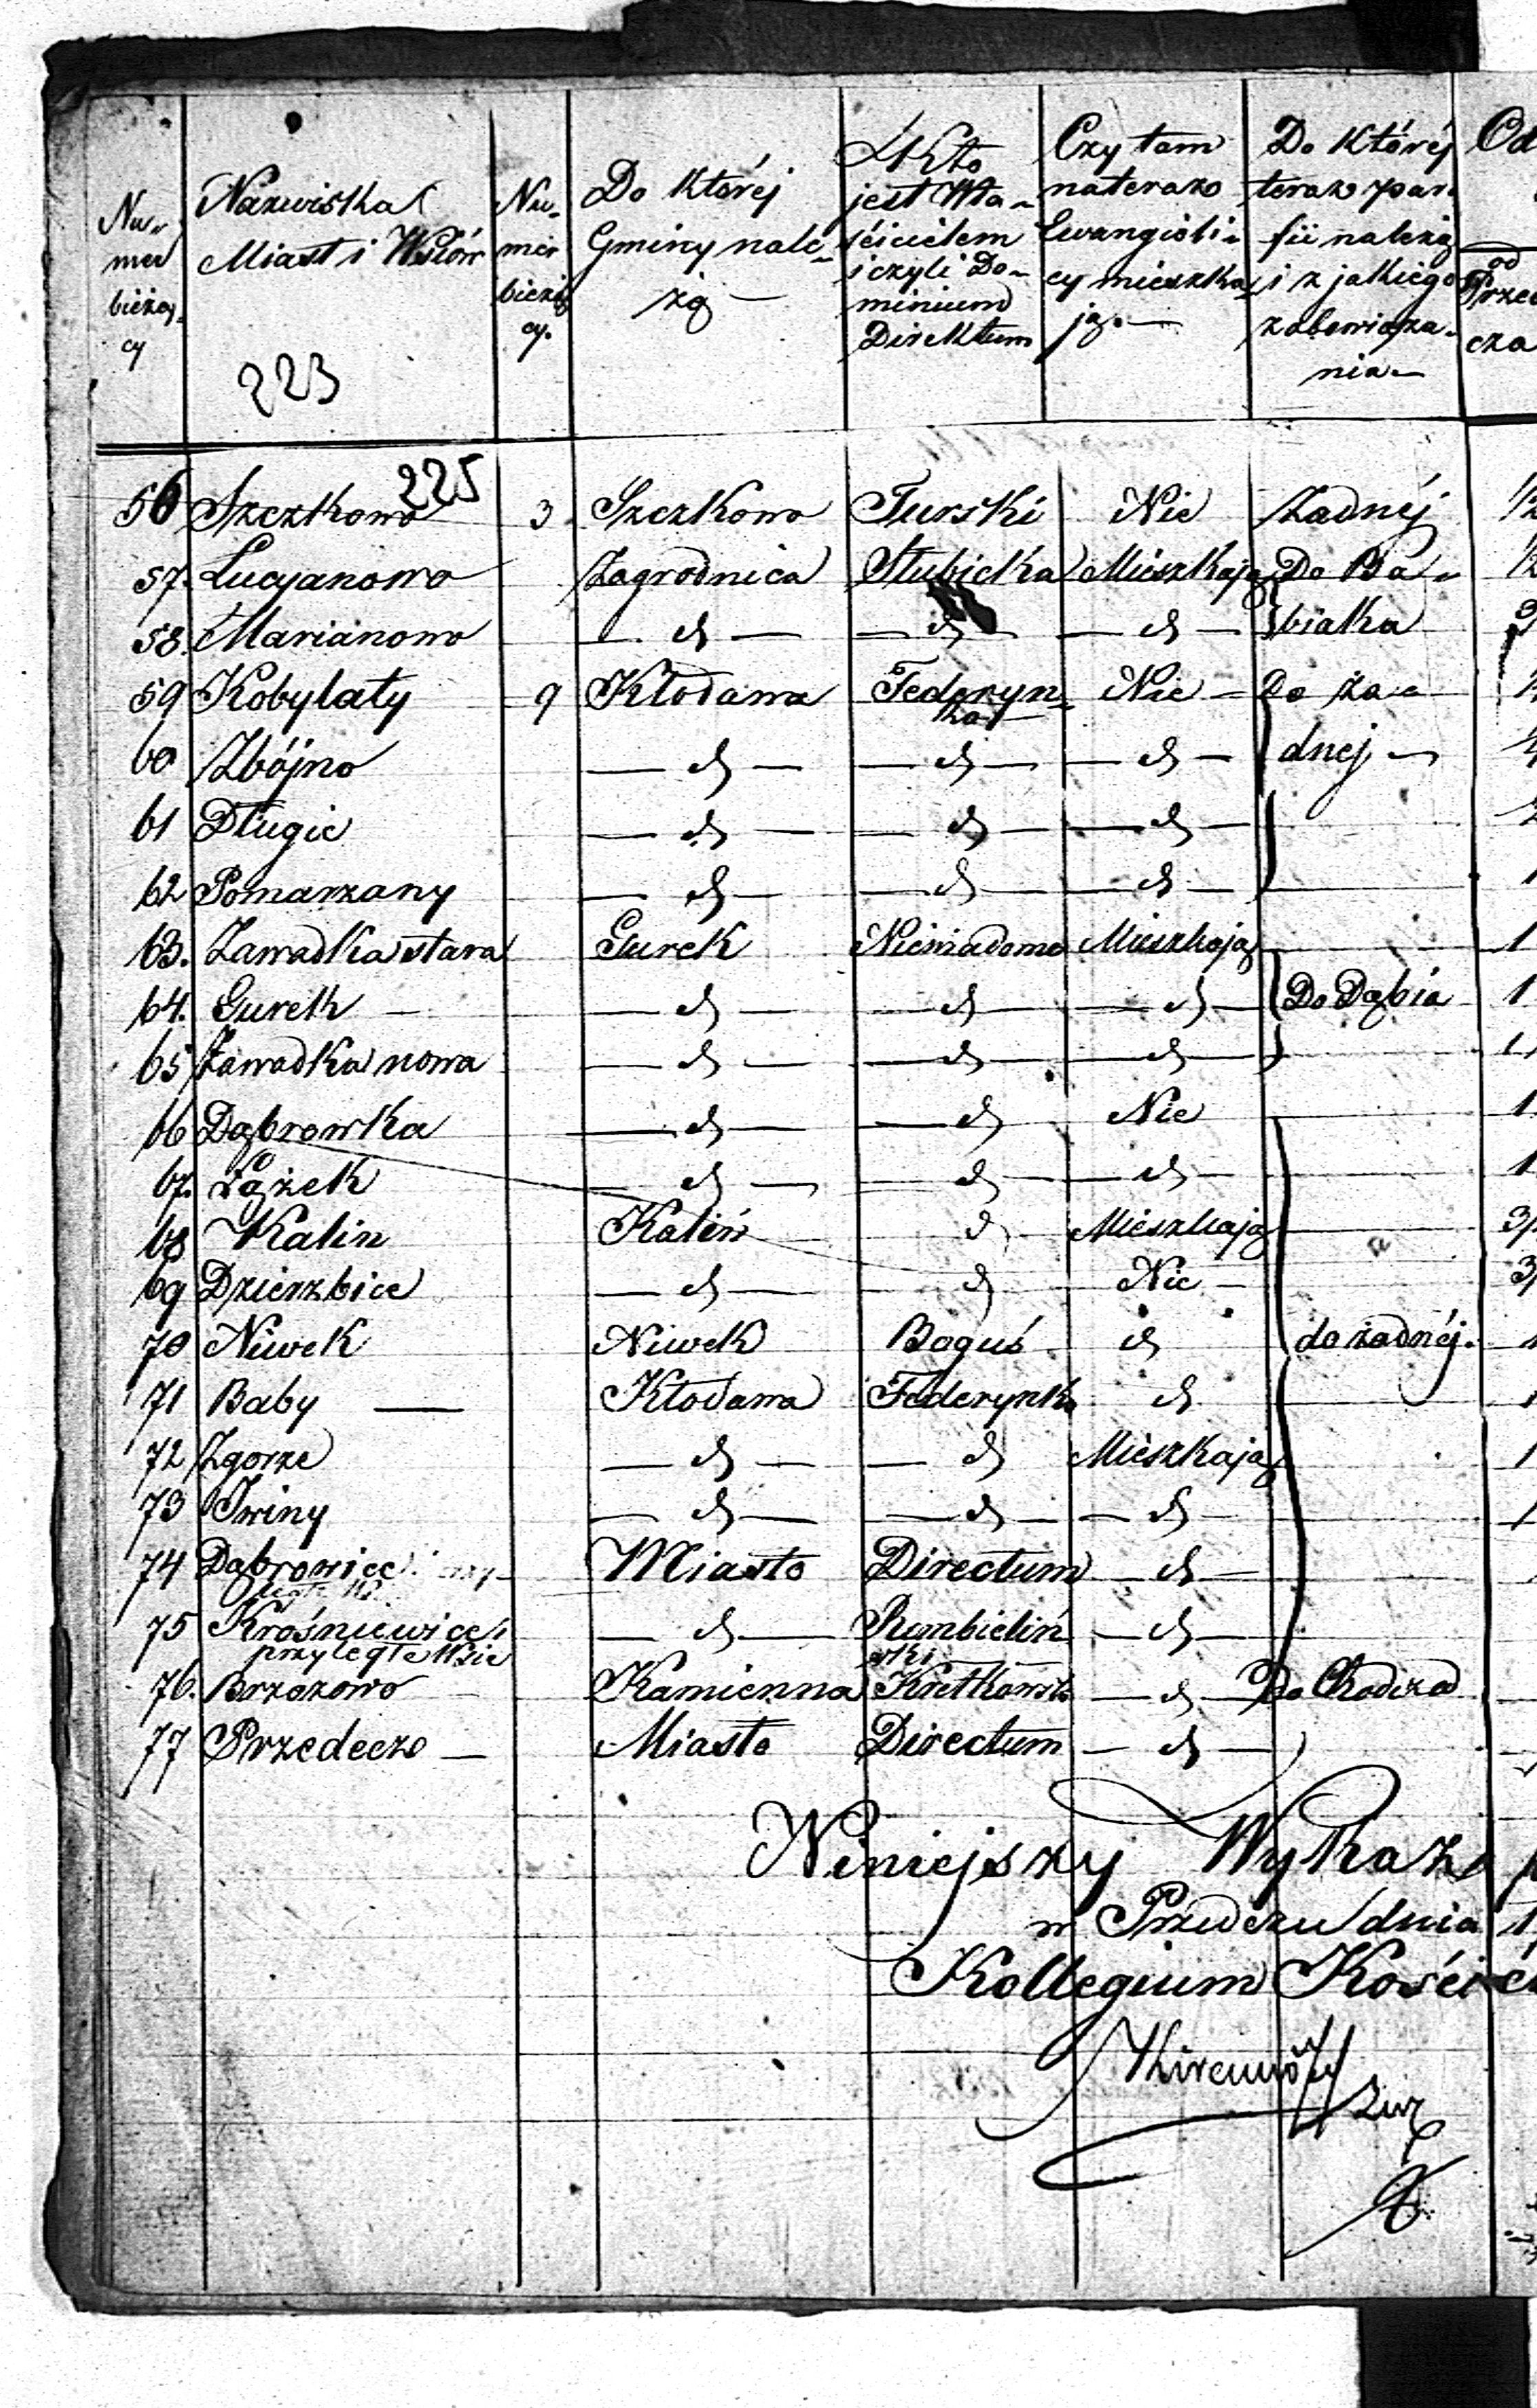 Nu-
mer
bieżą-
cy
Nazwiska
Miast i Wsiów
223
Nu-
mer
bieżą
cy.
Do którёj
Gminy nale-
żą —
Kto
jest Wła-
ścicielem
i czyli Do-
minium
Direktum
Czy tam
naterazo
Ewangieli-
cy mieszka-
ją. —
Do którёj
teraz par-
fii należą
i z jakiego
zobowiąza-
nia —
Od
od
Przed
cza
225
56 Szczkowo 3 Szczkowo Turski Nie Żadnéj 1/2
57. Lucyanowo Zagrodnica Słubicka Mieszkają Do Ba- 1/2
58. Marianowo — d — — d — — d — biaka
59 Kobylaty 9 Kłodawa Federyn- Nie — Do ża-
ka —
60 Zbójno — d — — d — — d — dnej —
61 Długie — d — — d — — d —
62 Pomarzany — d — — d — — d — 1
63. Zawadka stara Gurek Niewiadomo Mieszkają 1
64. Gurek — — d — — d — — d — Do Dąbia 1
65 Zawadka nowa — d — — d — — d — 1
66 Dąbrowka — d — — d Nie 1
67. Łążek — d — — d — — d — 1
68 Kalin Kaliń d Mieszkają 3/
69 Dzierzbice — d — d Nie — 3/
70 Niwek Niwek Boguś d do żadnéj. 1
71 Baby — Kłodawa Federynka d 1
72 Zgorze — d — — d Mieszkają 1
73 Iwiny — d — — d — — d — 1
74 Dąbrowice Miasto Directum — d —
75 Krośniewice i — d — Rembieliń — d —
przyległe Wsie ski
76. Brzozowo Kamienna Kretkowski — d — Do Chodcza
77 Przedecz — Miasto Directum — d —
Niniejszy Wykaz
w Przedczu dnia 1
Kollegium Kościé